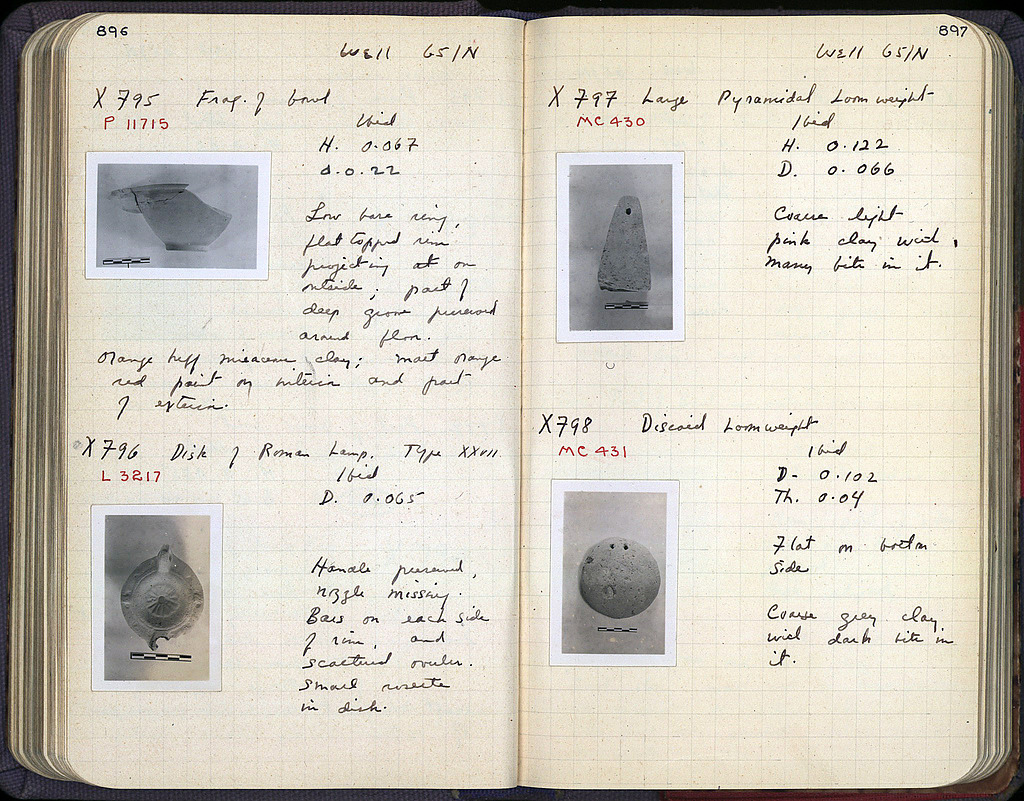 896
Well 65/N
X 795 Frag. of bowl
P 11715
Ibid
H. 0.067
d. 0.22
Low base ring,
flat topped rim
projecting at on
outside; part of
deep groove preserved
around floor.
Orange buff micaceous clay; matt orange
red paint on interior and part
of exterior.
X 796 Disk of Roman Lamp. Type XXVII
L 3217
Ibid
D. 0.065
Handle preserved,
nozzle missing.
Bars on each side
of rim, and
scattered ovules.
Small rosette
in disk.
897
Well 65/N
X 797 Large Pyramidal Loomweight
MC 430
Ibid
H. 0.122
D. 0.066
Coarse light
pink clay with
many bits in it.
X798 Discoid Loomweight
MC 431
Ibid
D. 0.102
Th. 0.04
Flat on bottom
side
Coarse grey clay
with dark bits in
it.